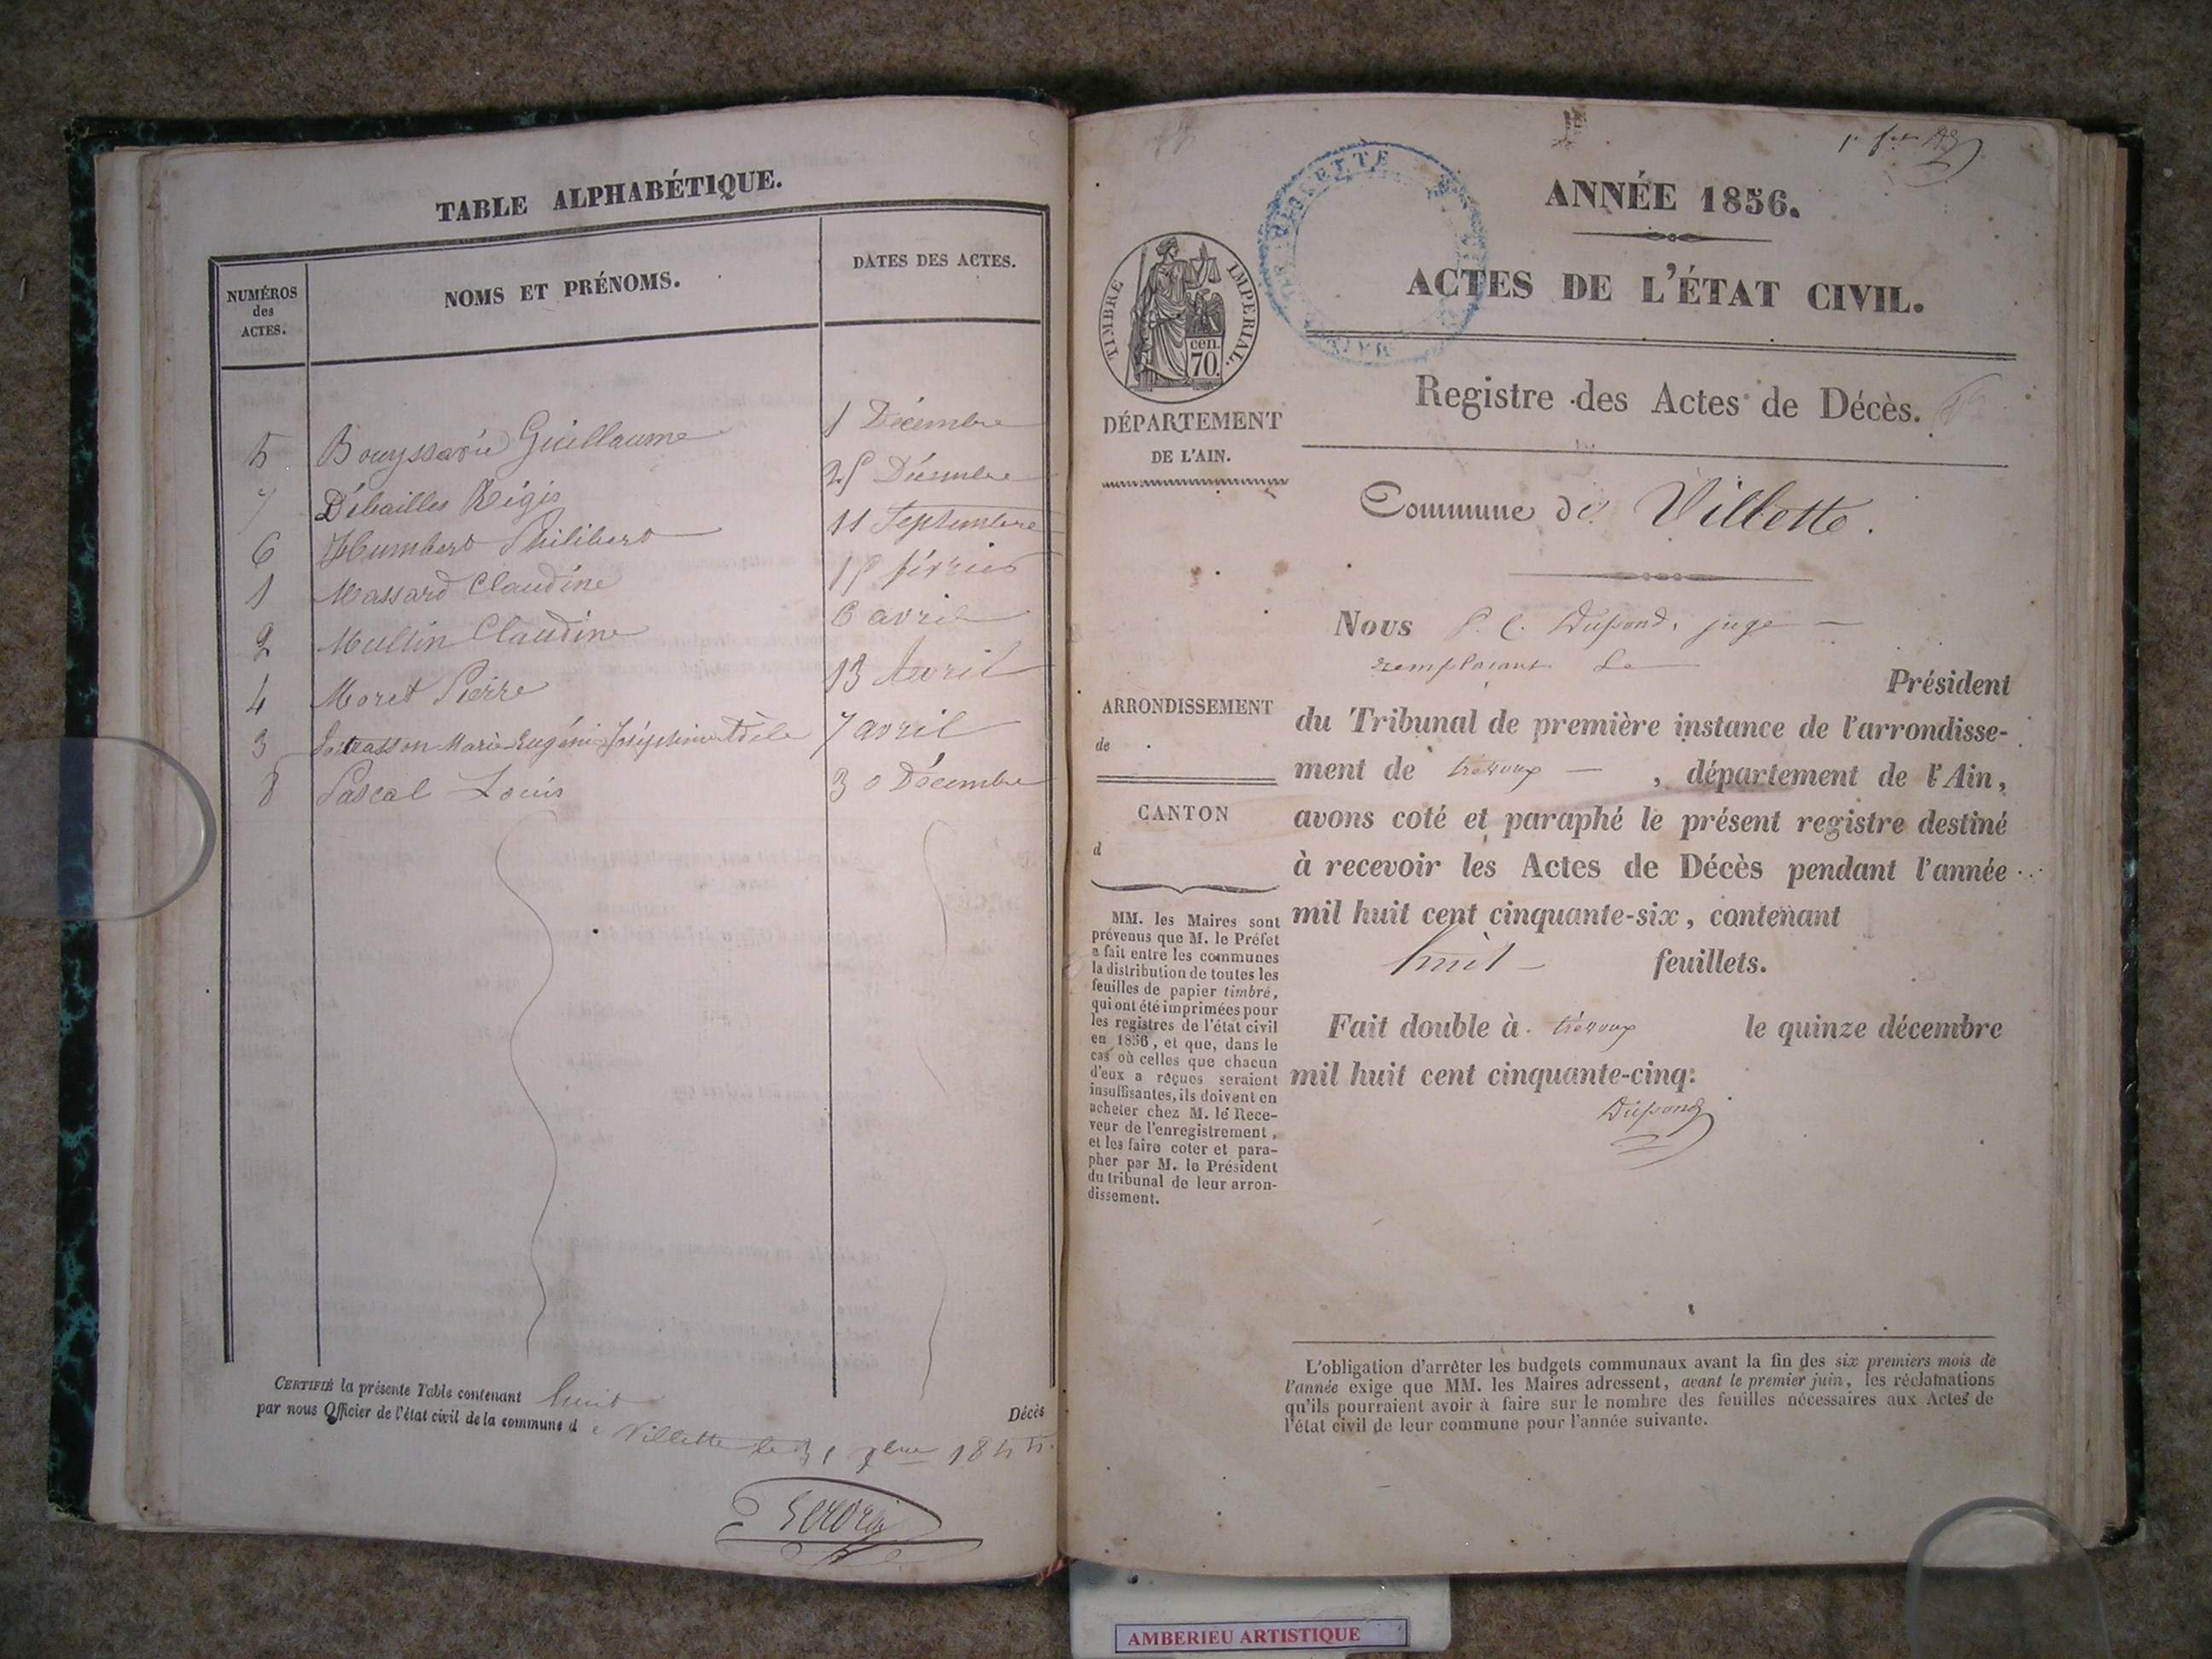 TABLE ALPHABÉTIQUE.
NUMÉROS
des
ACTES.
NOMS ET PRÉNOMS.
DATES DES ACTES.
5 Bouyssarie Guillaume 1 Décembre
7 Débailles Régis 25 Décembre
6 Humbert Philibert 11 Septembre
1 Massard Claudine 15 février
2 Mullin Claudine 6 avril
4 Moret Pierre 13 Avril
3 Marie Eugénie Joséphine Adèle 7 avril
8 Pascal Louis 30 Décembre
CERTIFIÉ la présente Table contenant huit Décès
par nous Officier de l'état civil de la commune de Villette le 31 1855.
ANNÉE 1856.
ACTES DE L'ÉTAT CIVIL.
TIMBRE IMPERIAL.
cen.
70.
DÉPARTEMENT
DE L'AIN.
Registre des Actes de Décès.
Commune de Villette.
Nous Dupond, juge
remplaçant Le
Président
du Tribunal de première instance de l'arrondisse-
ment de trévoux, département de l'Ain,
avons coté et paraphé le présent registre destiné
à recevoir les Actes de Décès pendant l'année
mil huit cent cinquante-six, contenant
huit feuillets.
Fait double à trévoux le quinze décembre
mil huit cent cinquante-cinq.
Dupond
ARRONDISSEMENT
de
CANTON
d
MM. les Maires sont
prévenus que M. le Préfet
a fait entre les communes
la distribution de toutes les
feuilles de papier timbré,
qui ont été imprimées pour
les registres de l'état civil
en 1856, et que, dans le
cas où celles que chacun
d'eux a reçues seraient
insuffisantes, ils doivent en
acheter chez M. le Rece-
veur de l'enregistrement,
et les faire coter et para-
pher par M. le Président
du tribunal de leur arron-
dissement.
L'obligation d'arrêter les budgets communaux avant la fin des six premiers mois de
l'année exige que MM. les Maires adressent, avant le premier juin, les réclamations
qu'ils pourraient avoir à faire sur le nombre des feuilles nécessaires aux Actes de
l'état civil de leur commune pour l'année suivante.
AMBERIEU ARTISTIQUE